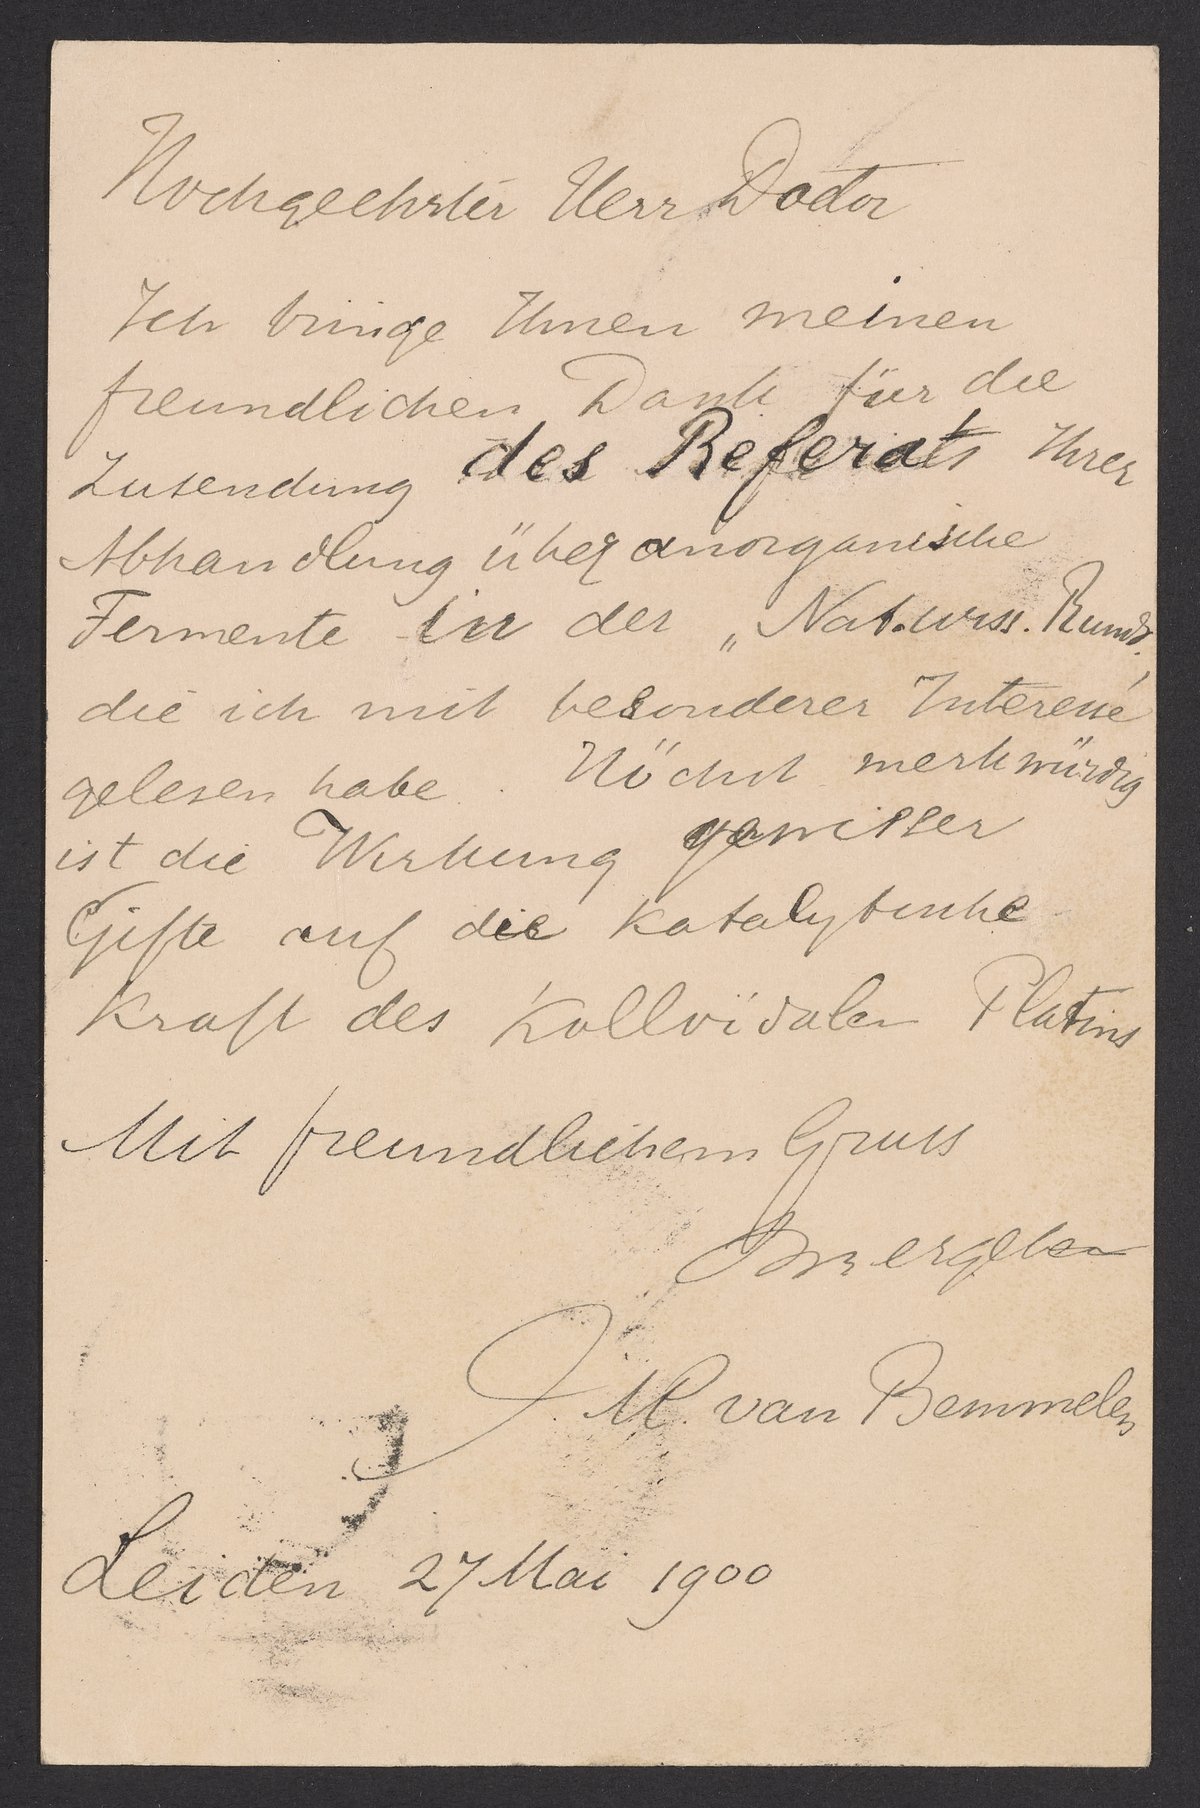 Hochgeehrter Herr Doctor
Ich bringe Ihnen meinen
freundlichen Dank für die
Zusendung des Referats Ihrer
Abhandlung über anorganische
Fermente in der „Nat.wiss. Runds.,
die ich mit besonderer Interesse
gelesen habe. Höchst merkwürdig
ist die Wirkung gewisser
Gifte auf die katalytische
Kraft des Kolloïdalen Platins
Mit freundlichem Gruss
Ihr ergeben
J M. van Bemmelen
Leiden 27 Mai 1900